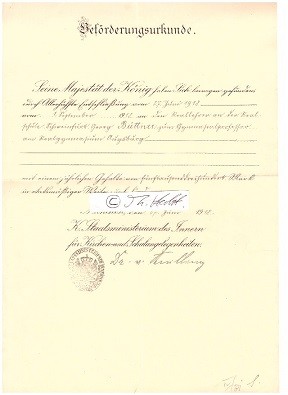 Beförderungsurkunde.
Seine Majestät der König haben Sich bewogen gefunden
durch Allerhöchste Entschließung vom 27. Juni 1912
vom 1. September 1912 an den Reallehrer an der Real-
schule Schweinfurt Georg Büttner zum Gymnasialprofessor
am Realgymnasium Augsburg
mit einem jährlichen Gehalte von Mark
in etatsmäßiger Weise
© Th. ©
München, 27. Juni 1912.
K. Staatsministerium des Innern
für Kirchen- und Schulangelegenheiten.
Dr. v.